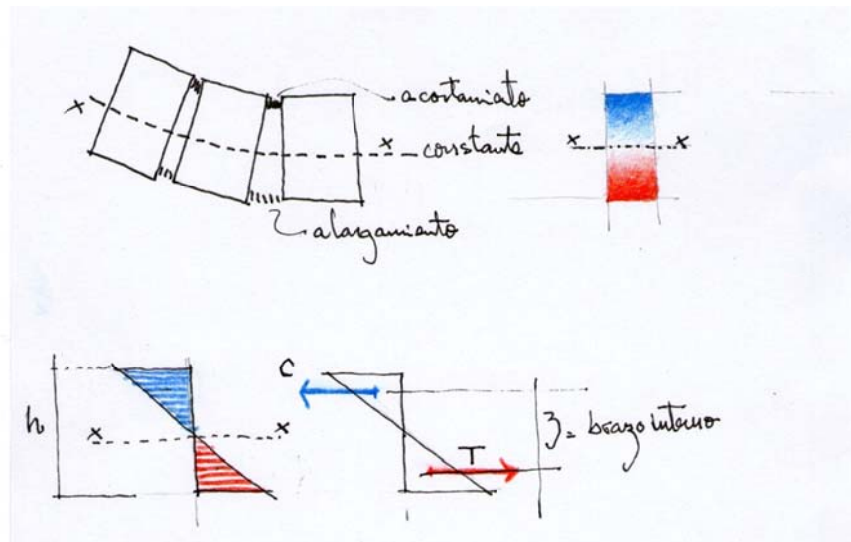 x
acortamiento
x
constante
alargamiento
x
x
h
x
x
C
T
z = brazo interno